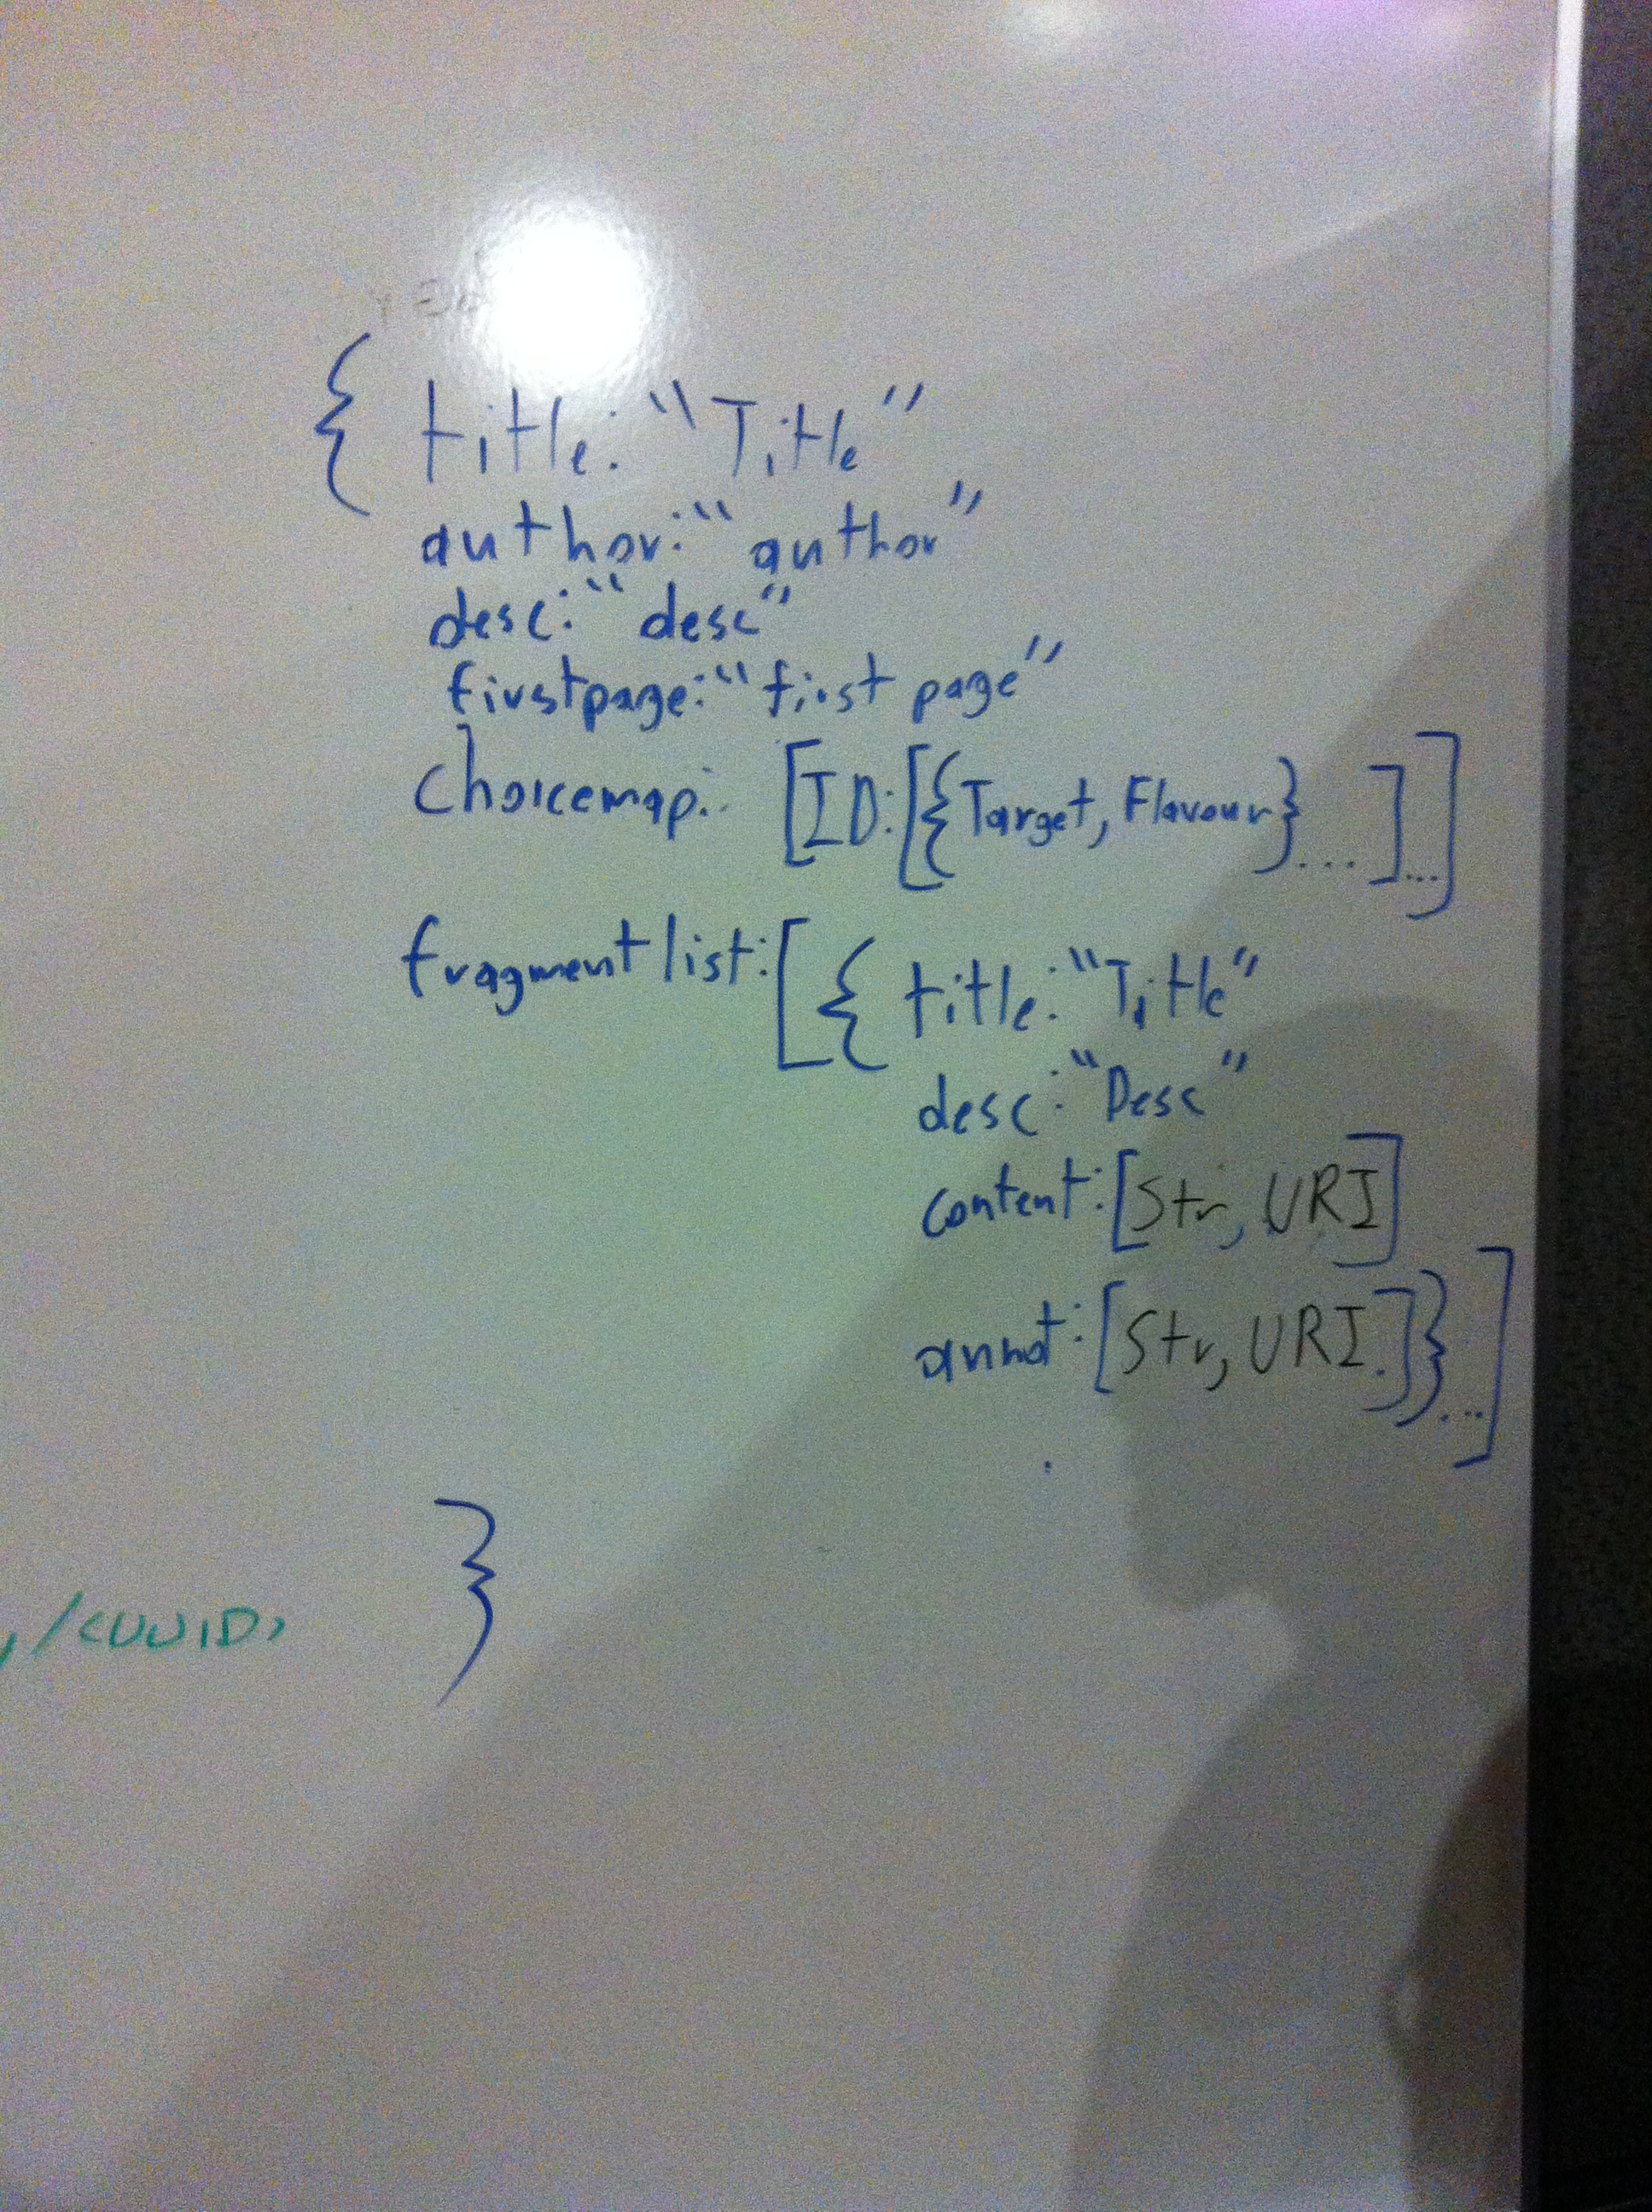 { title: "Title"
author: "author"
desc: "desc"
firstpage: "first page"
choicemap: [ID:[{Target, Flavour}...]...]
fragment list: [{ title: "Title"
desc: "Desc"
content: [Str, URI]
annot: [Str, URI.]}...]
}
/<UUID>